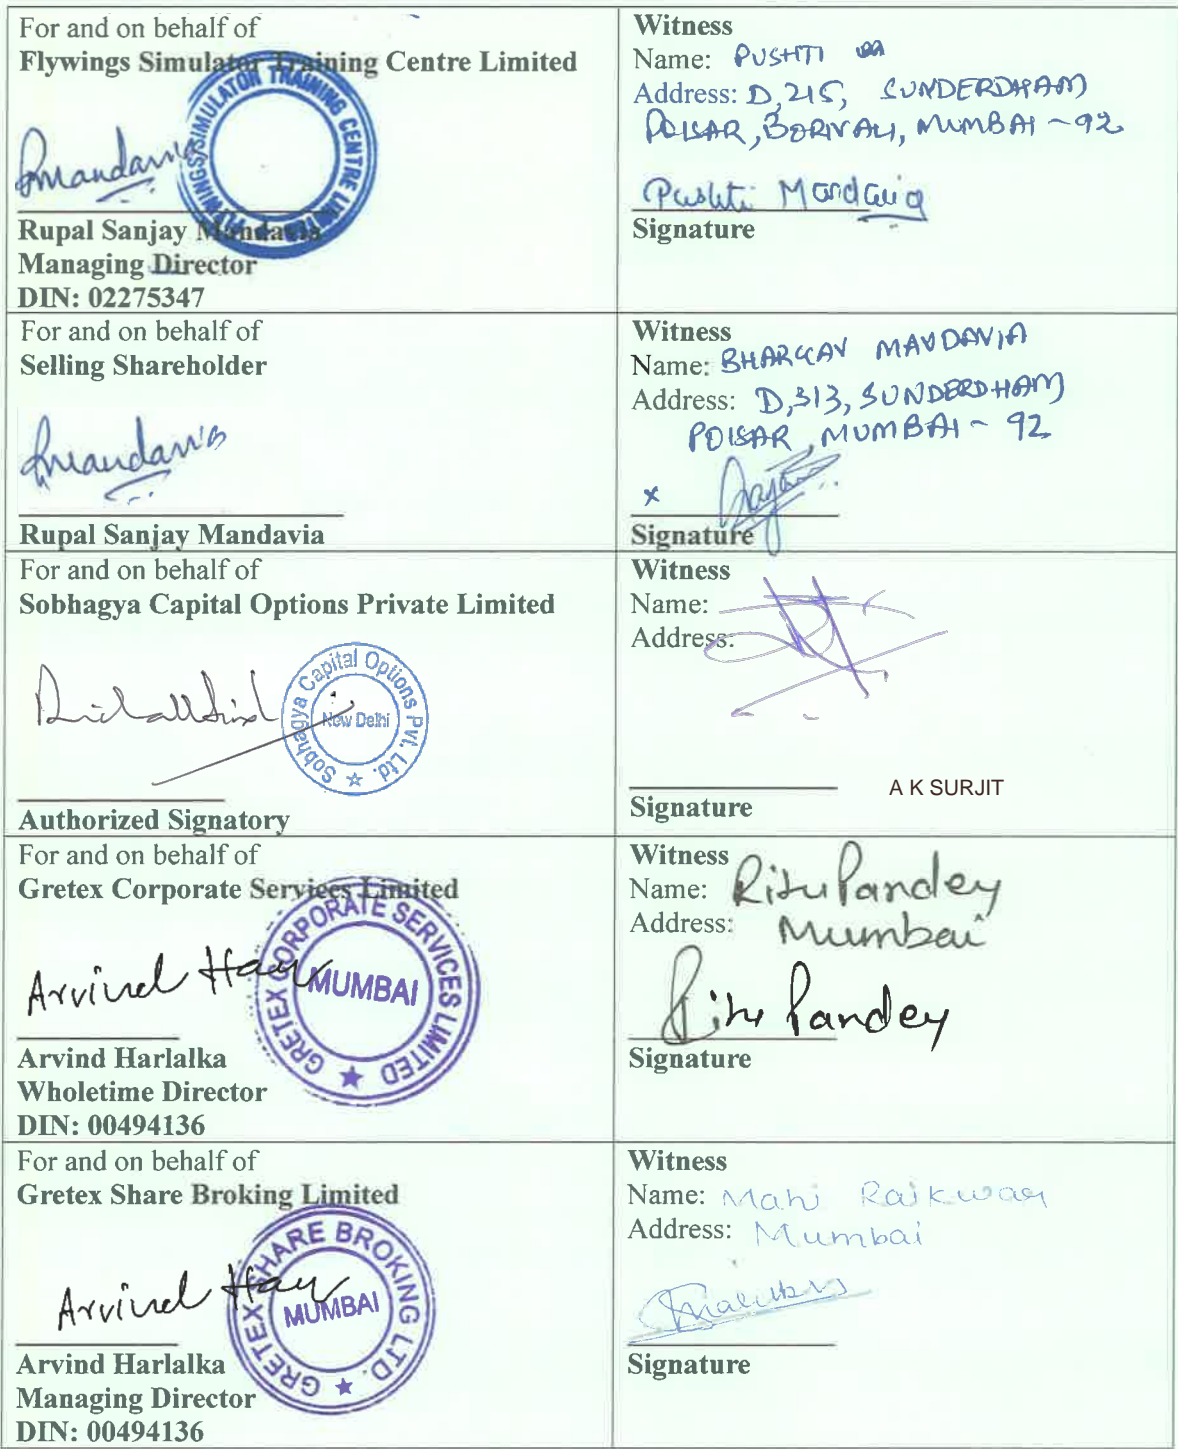 For and on behalf of
Flywings Simulator Training Centre Limited
FLYWINGS SIMULATOR TRAINING CENTRE LIMITED
Rupal Sanjay Mandavia
Managing Director
DIN: 02275347
Witness
Name: PUSHTI
Address: D,215, SUNDERDHAM
POISAR, BORIVALI, MUMBAI - 92
Pushti Mandavia
Signature
For and on behalf of
Selling Shareholder
Rmandavia
Rupal Sanjay Mandavia
Witness
Name: BHARGAV MANDAVIA
Address: D,313, SUNDERDHAM
POISAR, MUMBAI - 92
x
Signature
For and on behalf of
Sobhagya Capital Options Private Limited
Sobhagya Capital Options Pvt. Ltd.
New Delhi
Authorized Signatory
Witness
Name:
Address:
A K SURJIT
Signature
For and on behalf of
Gretex Corporate Services Limited
GRETEX CORPORATE SERVICES LIMITED
MUMBAI
Arvind Har
Arvind Harlalka
Wholetime Director
DIN: 00494136
Witness
Name: Ritu Pandey
Address: Mumbai
Ritu Pandey
Signature
For and on behalf of
Gretex Share Broking Limited
GRETEX SHARE BROKING LTD.
MUMBAI
Arvind Har
Arvind Harlalka
Managing Director
DIN: 00494136
Witness
Name: Mahi Raikwar
Address: Mumbai
Signature